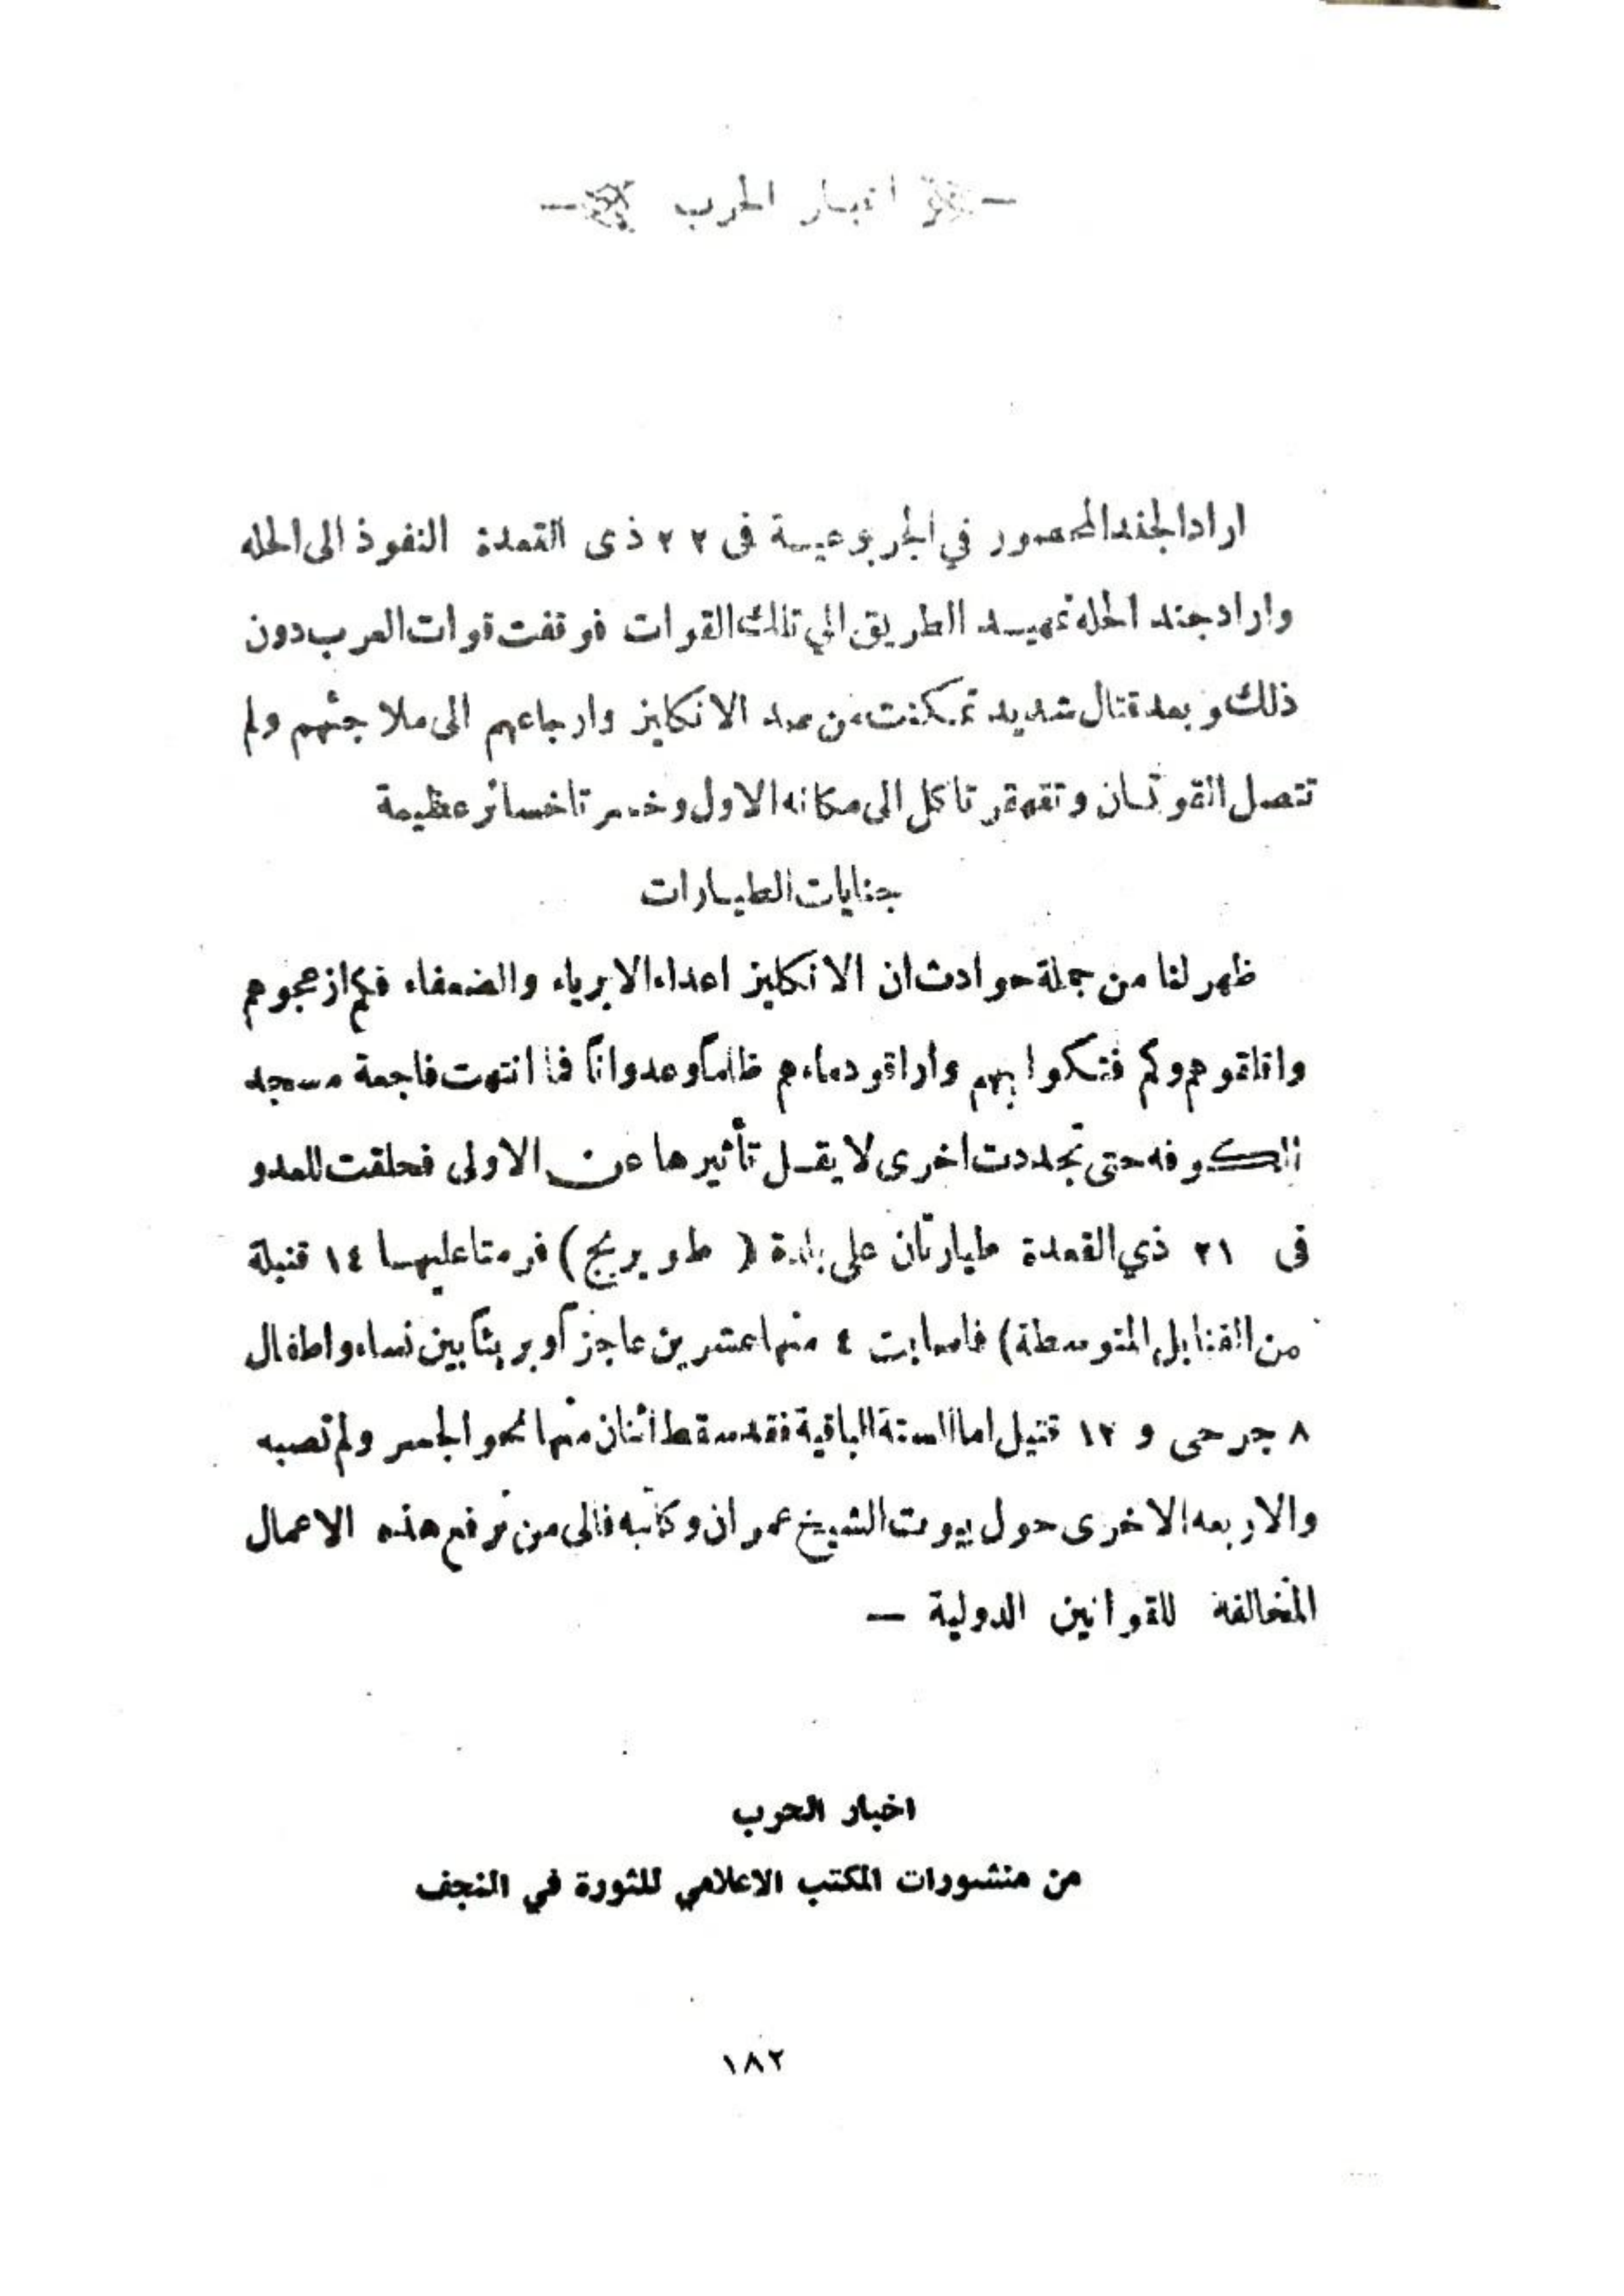 اخبار الحرب
اراد الجند المحصور في الجربوعيسة فى ٢٢ ذى القعدة النفوذ الى الحله
واراد جند الحله تمهيد الطريق الي تلك القوات فوقفت قوات العرب دون
ذلك وبعد قتال شديد تمكنت من صد الانكليز وارجاعهم الى ملاجئهم ولم
تتصل القوتان وتقهقرتا كل الى مكانه الاول وخسرتا خسائر عظيمة
جنايات الطيارات
ظهر لنا من جملة حوادث ان الانكليز اعداء الابرياء والضعفاء فكم ازعجوهم
واقلقوهم وكم فتكوا بهم واراقو دماءهم ظلماً وعدواناً فما انتهت فاجعة مسجد
الكوفه حتى تجددت اخرى لا يقل تأثيرها عن الاولى فحلقت للعدو
فى ٢١ ذي القعدة طيارتان على بلدة ( طويريج ) فرمتا عليها ١٤ قنبلة
من القنابل المتوسطة) فاصابت ٤ منها عشرين عاجزاً وبريئاً بين نساء واطفال
٨ جرحى و ١٢ قتيل اما الستة الباقية فقد سقط اثنان منها نحو الجسر ولم تصبه
والاربعه الاخرى حول بيوت الشيخ عمران وكاتبه فالى من نرفع هذه الاعمال
المخالفة للقوانين الدولية —
اخبار الحرب
من منشورات المكتب الاعلامي للثورة في النجف
١٨٢